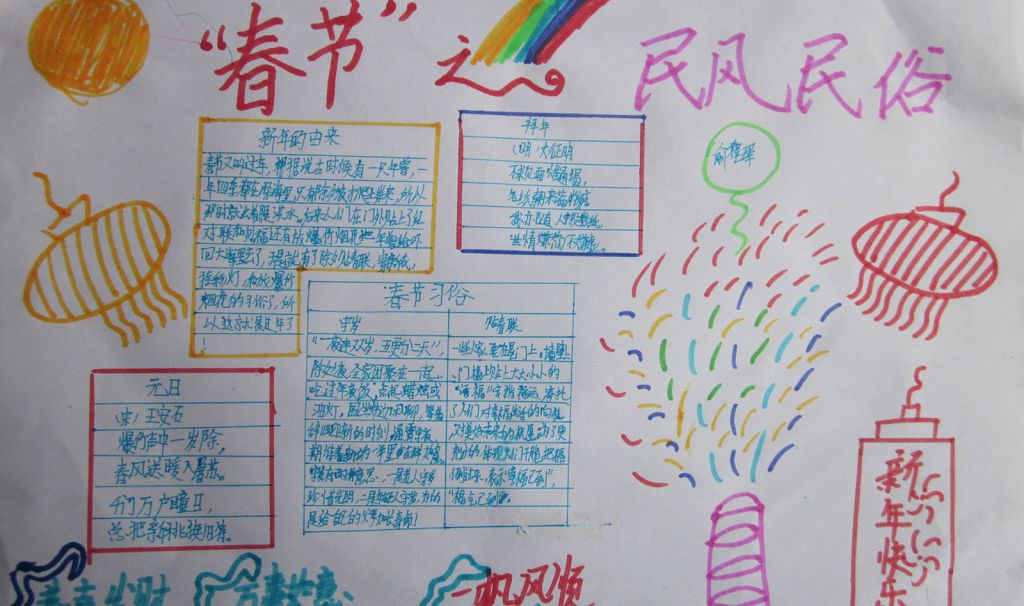 “春节”之
民风民俗
新年的由来
春节又叫过年,根据说古时候有一只年兽,一
年四季都在深海里,只有除夕
对联和见福还有放爆竹烟花把年兽给吓
回大海里去了,于是就有了除夕贴春联,
挂彩灯,和放爆竹
烟花的习俗了,所
以这就是过年了
!
拜年
(明)文征明
不求见面惟通谒,
名纸朝来满敝庐
我亦随人投数纸
世情嫌简不嫌虚。
俞程珲
春节习俗
守岁
贴春联
“一夜连双岁,五更分二天”,
一些人家要在屋门上,墙壁
除夕之夜,全家团聚在一起
门楣上贴上大大小小的
吃过年夜饭,点起蜡烛或
“福”字指福运,寄托
油灯,围坐炉旁闲聊,等着
了人们对幸福生活的向往
辞旧迎新的时刻,通宵守夜,
对美好未来的祝愿为了更
期待着新的一年里吉祥如意
充分的体现人们干脆把福
守岁有两种意思,一是老人守岁
倒过来,表示“幸福已到”,
珍惜光明,二是年轻人守岁,为的
“福气已到”。
是给自己的父母加长寿命!
元日
宋/王安石
爆竹声中一岁除,
春风送暖入屠苏。
千门万户瞳日,
总把新桃换旧符。
新年快乐
万事如意
一帆风顺